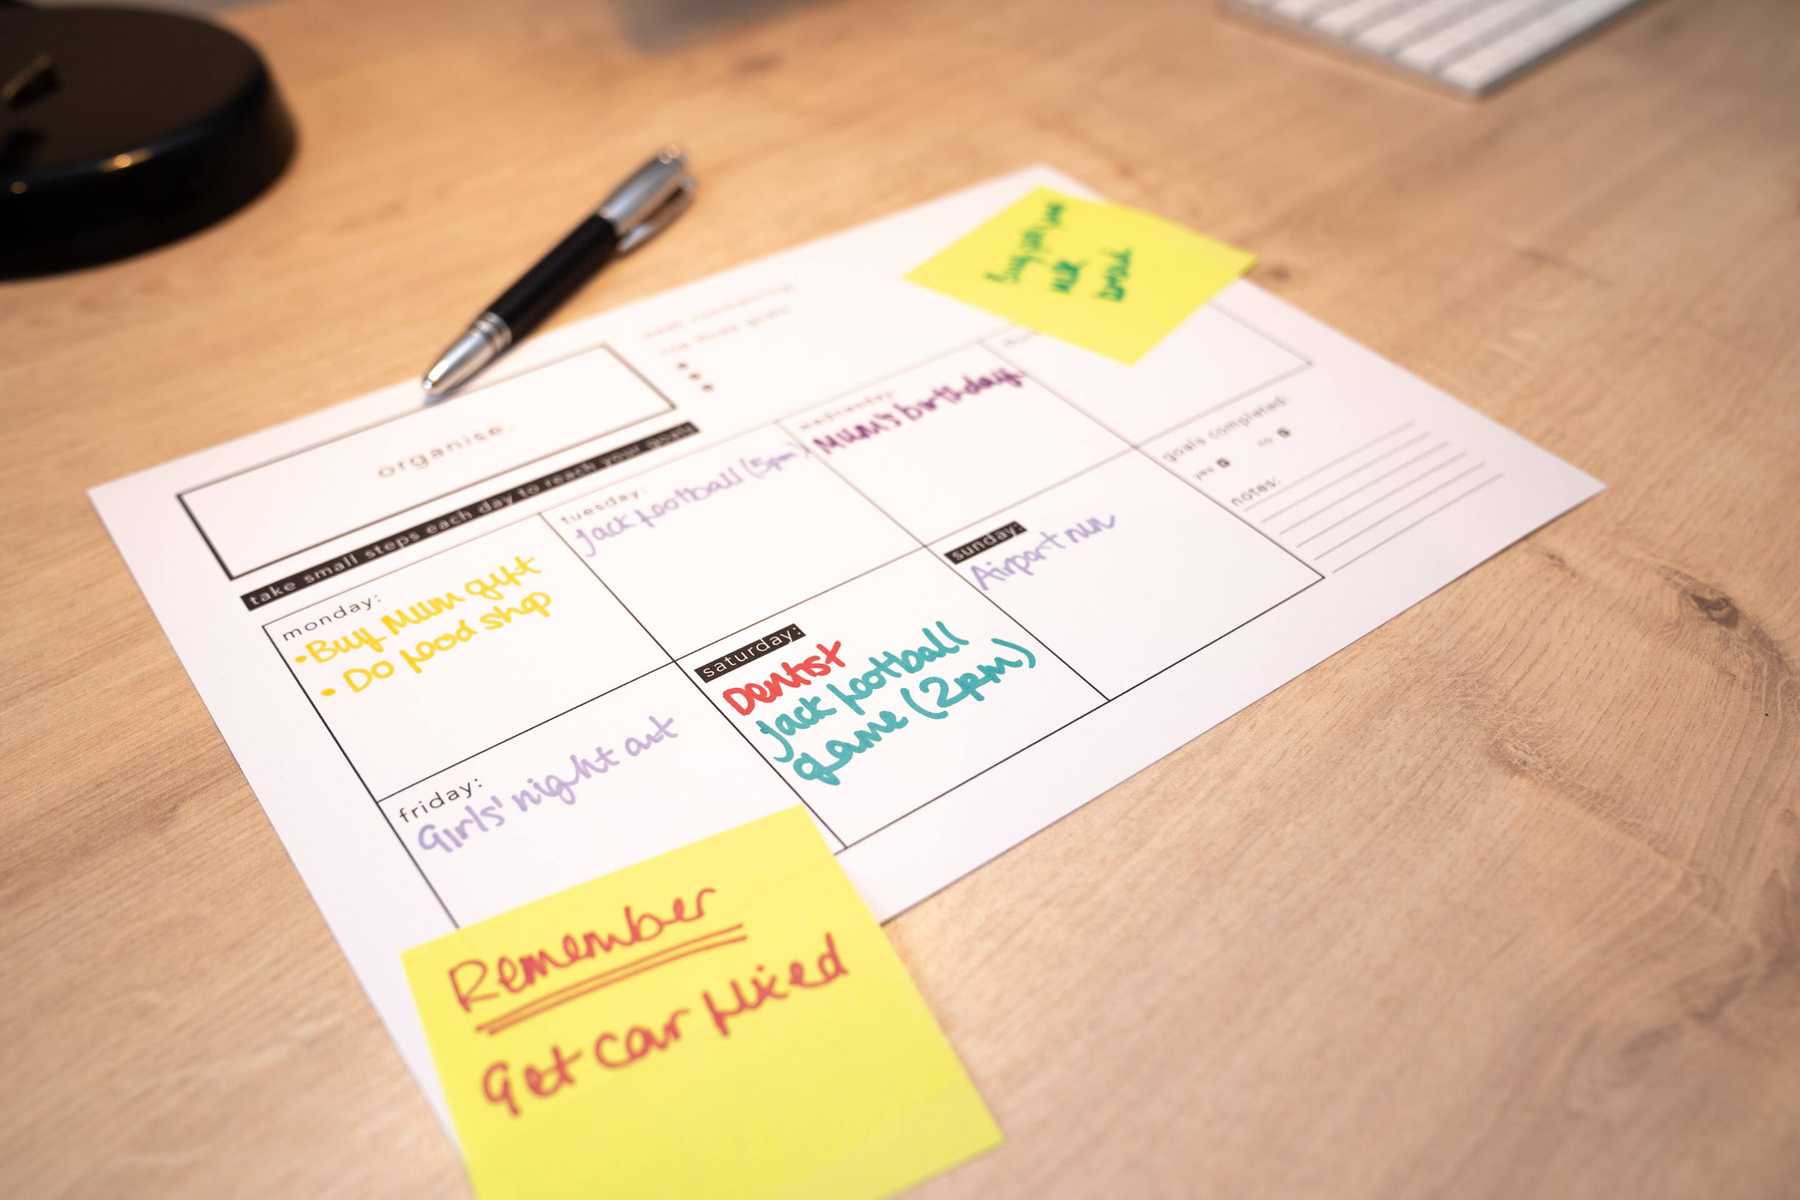 organise.
take small steps each day to reach your goals
monday:
• Buy Mum gift
• Do food shop
tuesday:
Jack football (5pm)
wednesday:
Mum's birthday
friday:
Girls' night out
saturday:
Dentist
Jack football
game (2pm)
sunday:
Airport run
goals completed:
yes
no
notes:
milk
bread
Remember
Get car fixed